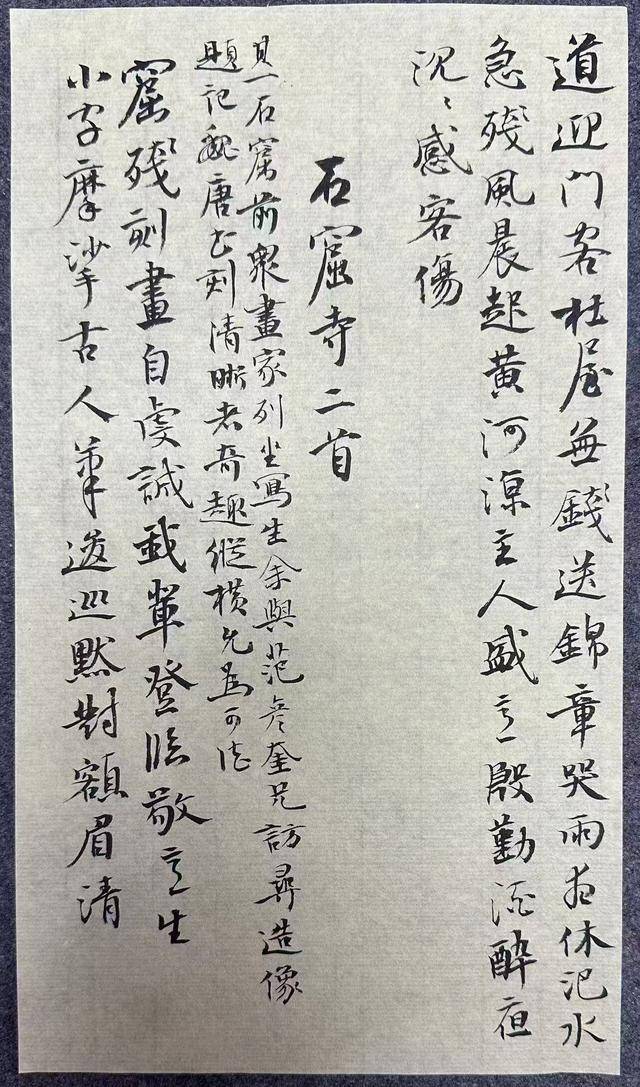 道迎門客杜屋無錢送錦章哭雨相休汜水
急殘風晨起黃河涼主人盛意殷勤酒醉夜
沉沉感客傷
石窟寺二首
其一石窟前眾畫家列坐寫生余與范彥奎兄訪尋造像
題記魏唐書刻清晰者奇趣縱橫尤為可法
窟殘刻畫自虔誠我輩登臨敬意生
小字摩挲古人筆逡巡默對額眉清